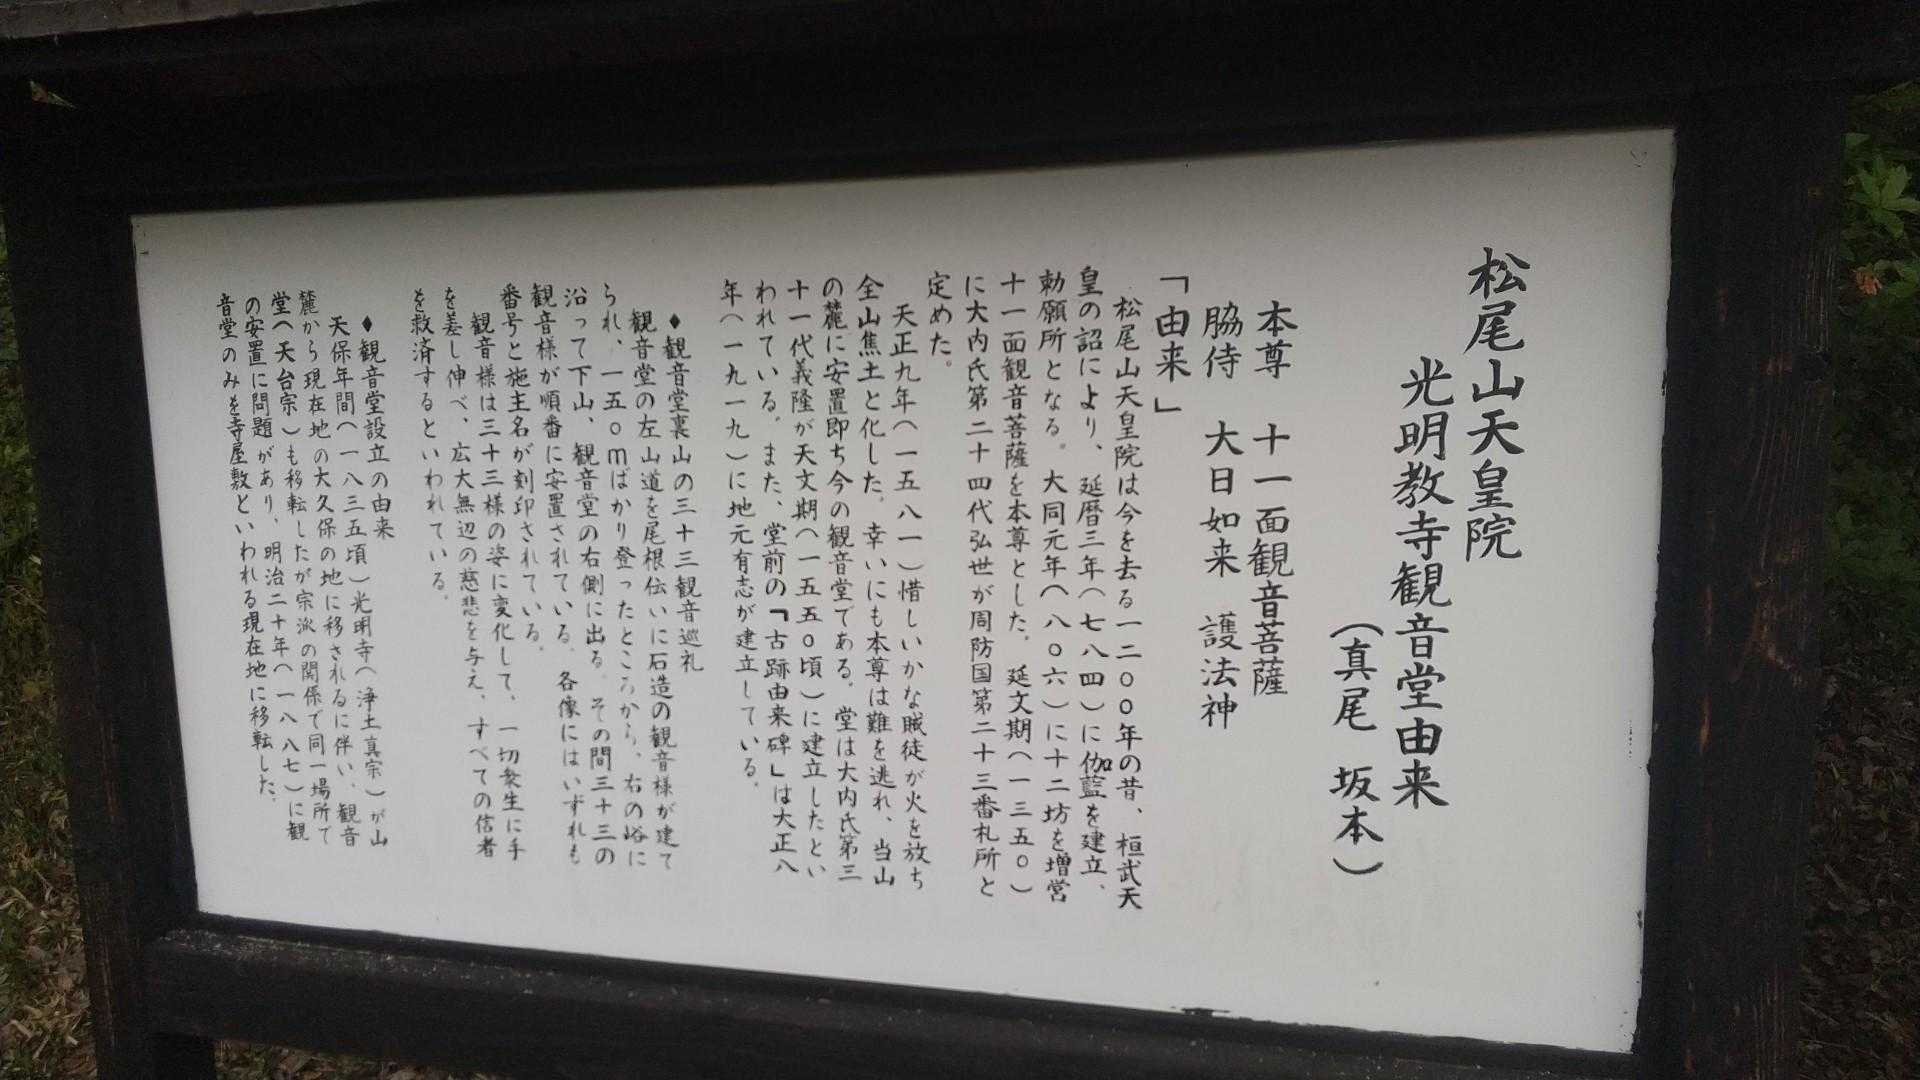 松尾山天皇院
光明教寺観音堂由来
(真尾 坂本)
本尊 十一面観音菩薩
脇侍 大日如来 護法神
「由来」
松尾山天皇院は今を去る一二〇〇年の昔、桓武天
皇の詔により、延暦三年(七八四)に伽藍を建立、
勅願所となる。大同元年(八〇六)に十二坊を増営
十一面観音菩薩を本尊とした。延文期(一三五〇)
に大内氏第二十四代弘世が周防国第二十三番札所と
定めた。
天正九年(一五八一)惜しいかな賊徒が火を放ち
全山焦土と化した。幸いにも本尊は難を逃れ、当山
の麓に安置即ち今の観音堂である。堂は大内氏第三
十一代義隆が天文期(一五五〇頃)に建立したとい
われている。また、堂前の「古跡由来碑」は大正八
年(一九一九)に地元有志が建立している。
♦観音堂裏山の三十三観音巡礼
観音堂の左山道を尾根伝いに石造の観音様が建て
られ、一五〇mばかり登ったところから、右の峪に
沿って下山、観音堂の右側に出る。その間三十三の
観音様が順番に安置されている。各像にはいずれも
番号と施主名が刻印されている。
観音様は三十三様の姿に変化して、一切衆生に手
を差し伸べ、広大無辺の慈悲を与え、すべての信者
を救済するといわれている。
♦観音堂設立の由来
天保年間(一八三五頃)光明寺(浄土真宗)が山
麓から現在地の大久保の地に移されるに伴い、観音
堂(天台宗)も移転したが宗派の関係で同一場所で
の安置に問題があり、明治二十年(一八八七)に観
音堂のみを寺屋敷といわれる現在地に移転した。